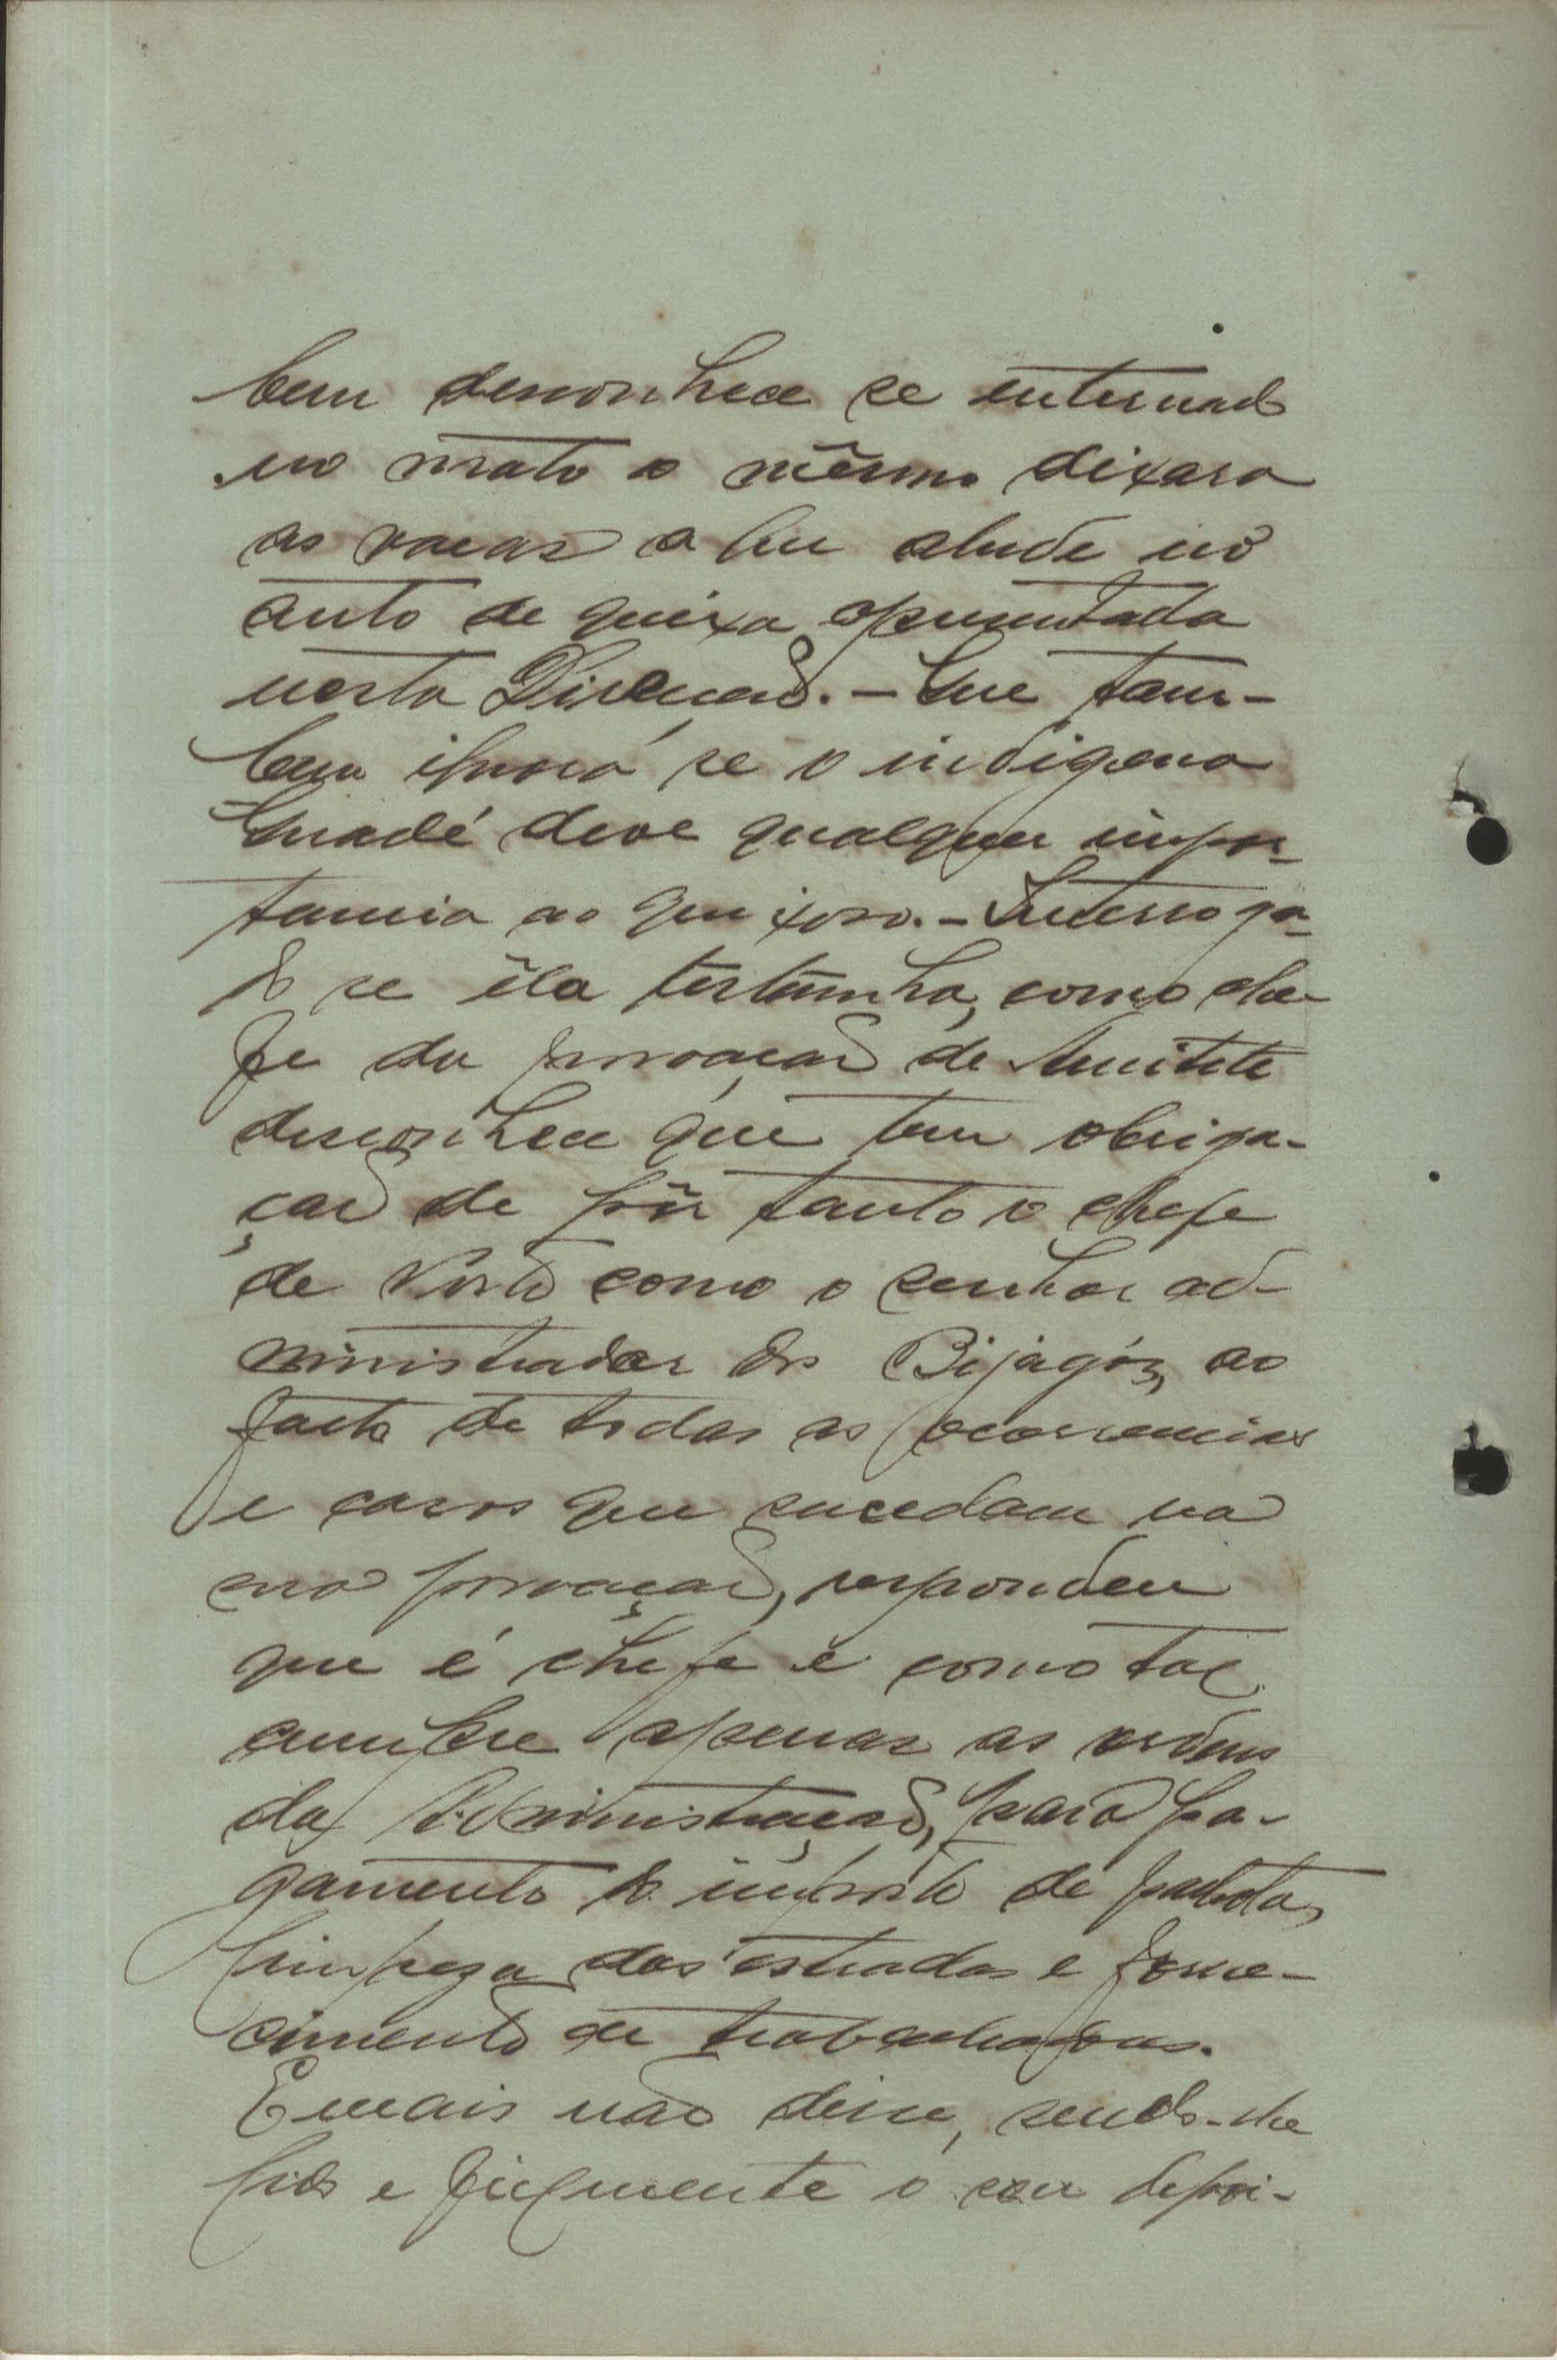 bem desconhece se internado
no mato o mesmo dixara
as vacas a que alude no
auto de queixa apresentada
nesta Direcção. - Que tam-
bem ignora se o indigena
deve qualquer impor-
tancia ao queixoso. - Interroga-
do se êla testemunha, como che-
fe da povoação de
desconhece que tem obriga-
ção de pôr tanto o chefe
de Posto como o senhor ad-
ministrador dos Bijagóz, ao
facto de todas as ocorrencias
e casos que sucedam na
sua povoação, respondeu
que é chefe e como tal
cumpre apenas as ordens
da Administração, para pa-
gamento do imposto de palhota,
limpeza das estradas e forne-
cimento de trabalhadores.
E mais não disse, sendo-lhe
lido e fielmente o seu depoi-